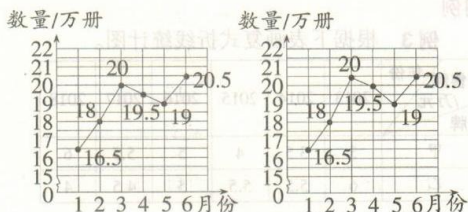 数量/万册
22
21
20
19
18
17
16
15
0
20
20.5
19.5
19
18
16.5
1 2 3 4 5 6 月份
数量/万册
22
21
20
19
18
17
16
15
0
20
20.5
19.5
19
18
16.5
1 2 3 4 5 6 月份